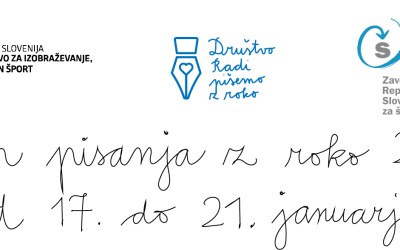 SLOVENIJA
VO ZA IZOBRAŽEVANJE,
N ŠPORT
Društvo
Radi
pišemo
z roko
S
Zavo
Rep
Slov
za š
n pisanja z roko 2
d 17. do 21. januarj